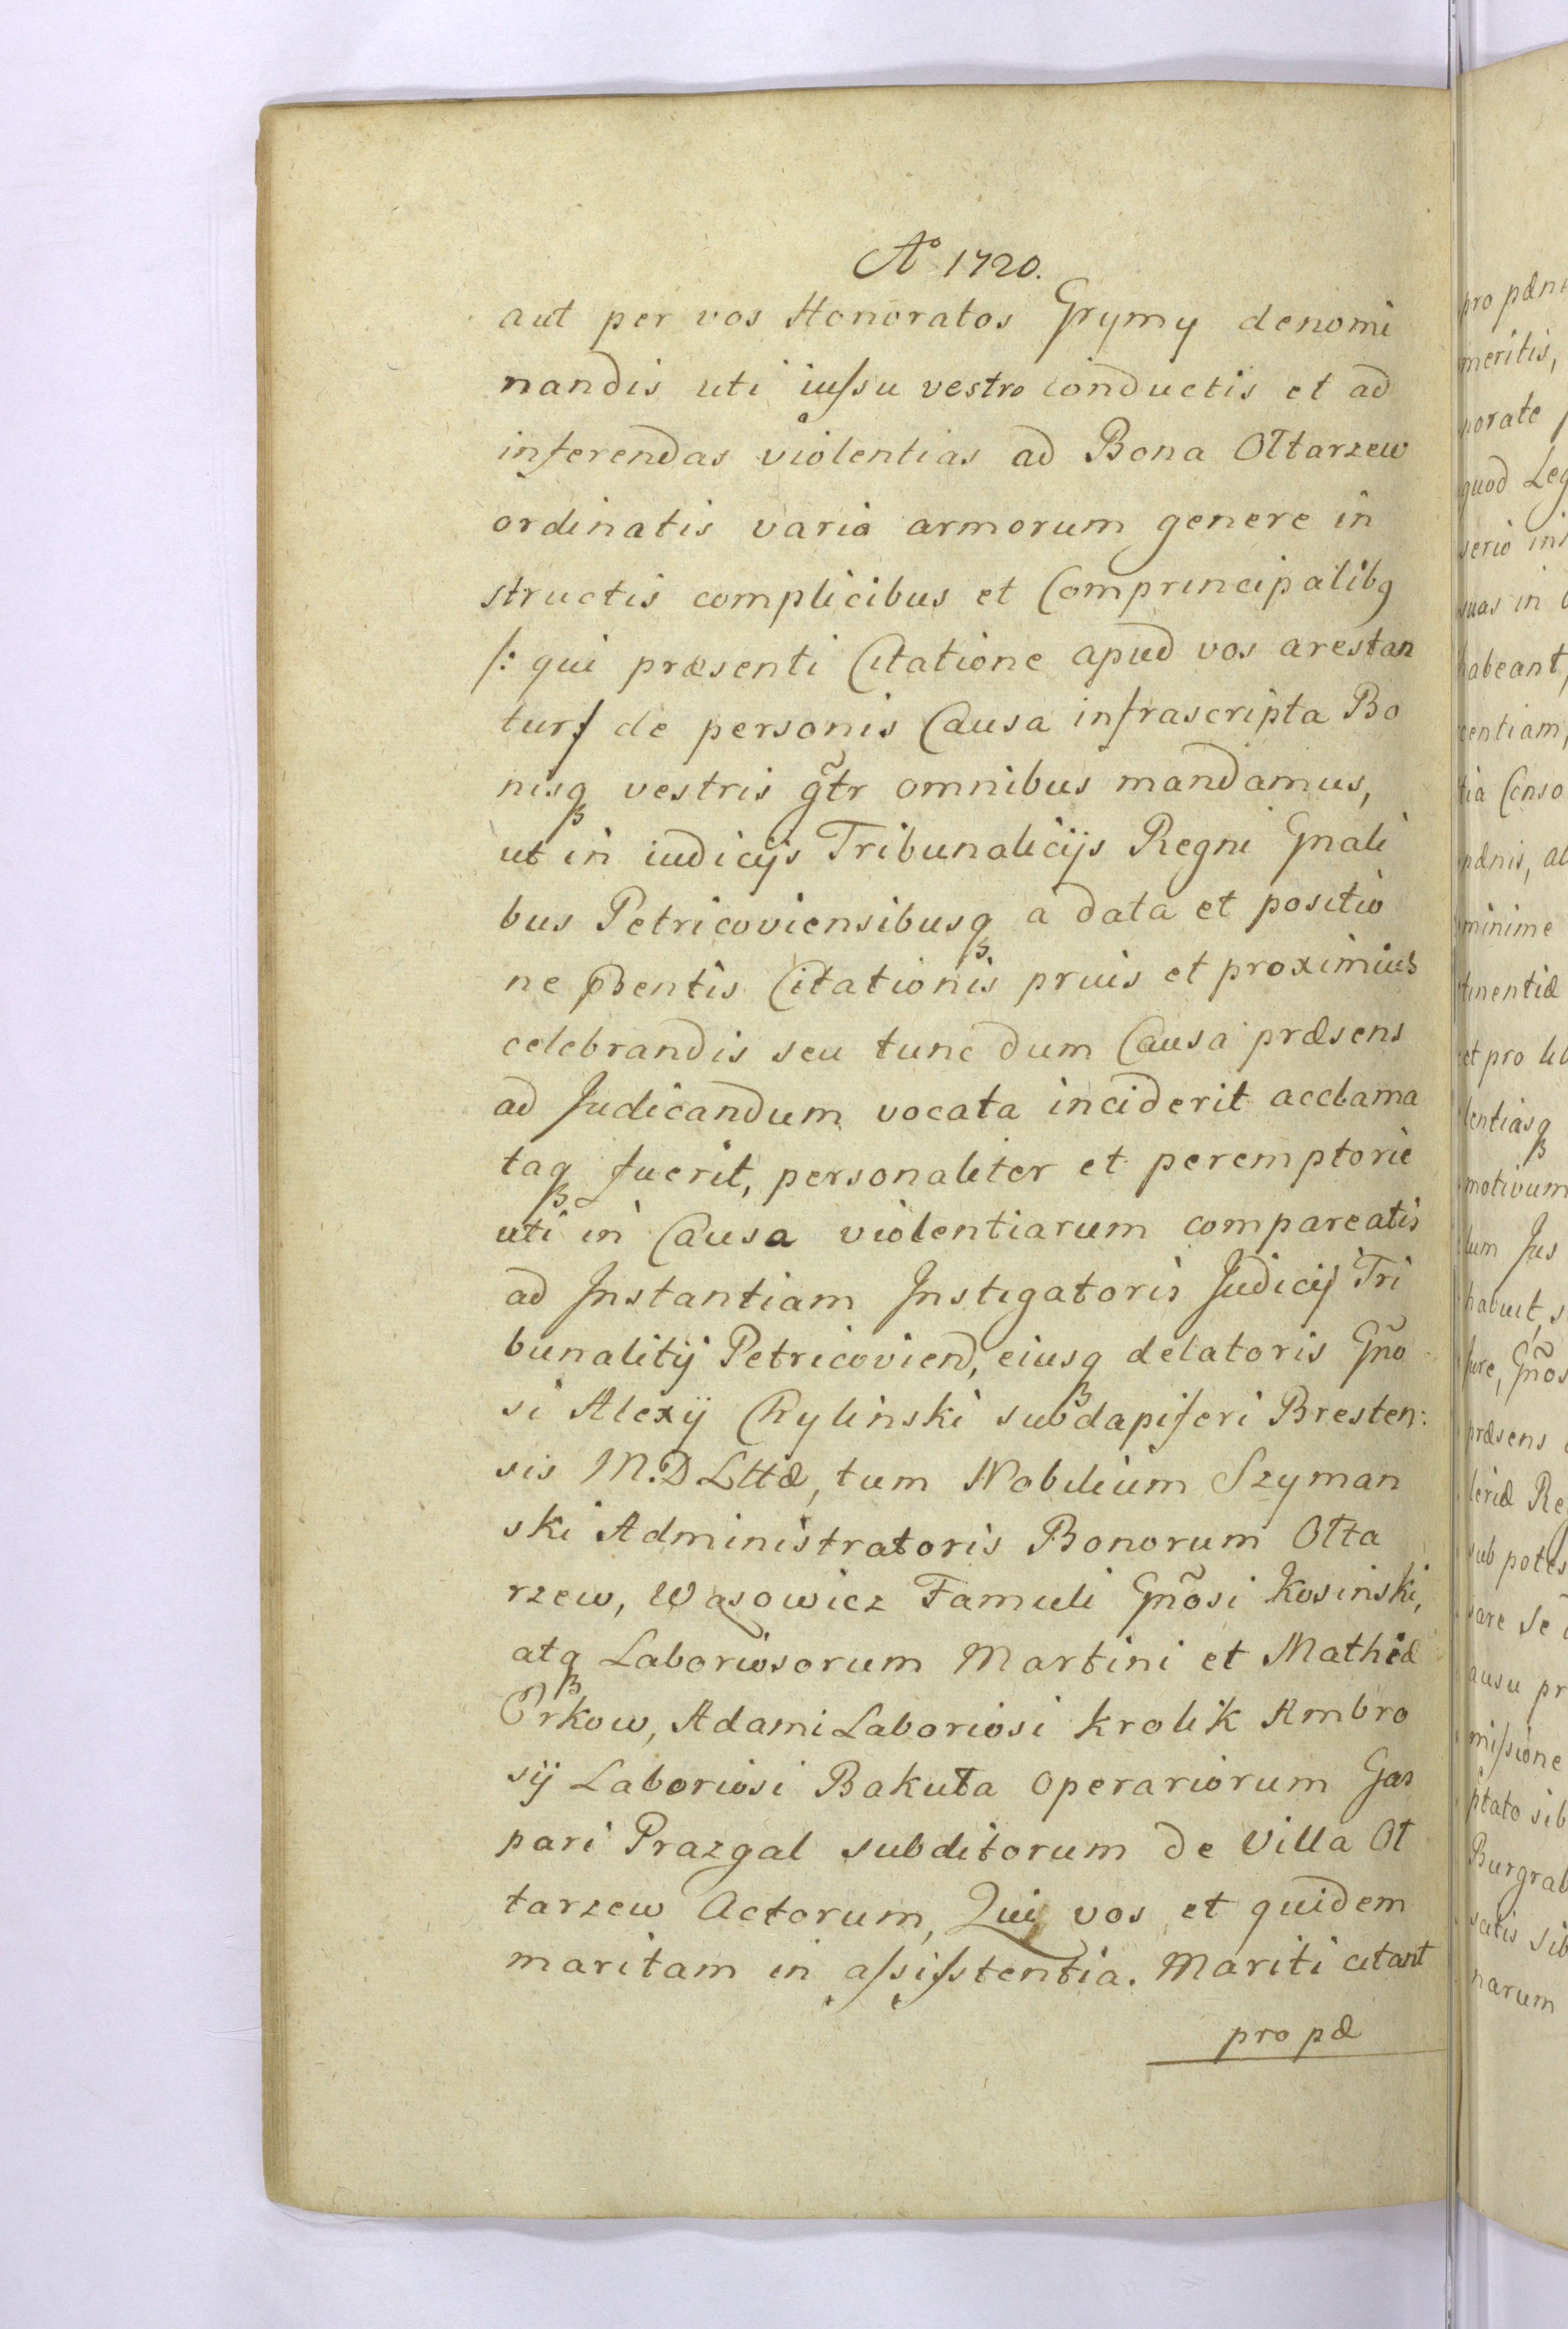 Aº 1720.
aut per vos Honoratos Grymy denomi
nandis uti iussu vestro conductis et ad
inferendas violentias ad Bona Ołtarzew
ordinatis vario armorum genere in
structis complicibus et Comprincipalibq
/: qui præsenti Citatione apud vos arestan
tur/ de personis Causa infrascripta Bo
nisqꝫ vestris gt̃r omnibus mandamus,
ut in iudicijs Tribunalicijs Regni Gnali
bus Petricoviensibusqꝫ a data et positio
ne pbentis Citationis prius et proximius
celebrandis seu tunc dum Causa præsens
ad Judicandum vocata inciderit acclama
taqꝫ fuerit, personaliter et peremptorie
uti in Causa violentiarum compareatis
ad Instantiam Instigatoris Judicij Tri
bunalitij Petricovien̄, eiusqꝫ delatoris Gño
si Alexij Chylinski subdapiferi Bresten:
sis M.D Lttæ, tum Nobilium Szyman
ski Administratoris Bonorum Ołta
rzew, Wąsowicz Famuli Gñosi Kosinski,
atqꝫ Laboriosorum Martini et Mathiæ
Adami Laboriosi Krolik Ambro
sij Laboriosi Bakuła Operariorum Gas
pari Prazgal subditorum de Villa Oł
tarzew Actorum, Qui vos et quidem
maritam in assisstentia. Mariti citant
pro pæ
pro pæn
meritis,
porate
quod Leg
serio ins
suas in
habeant,
centiam,
tia Conso
pænis, al
minime
tinentiæ
et pro lib
lentiasqꝫ
motivum
lum Jus
habuit, s
Jure, Gños
præsens
leriæ Re
sub potes
sare se
ausu pr
missione
ptato sib
Burgrab
satis sib
narum